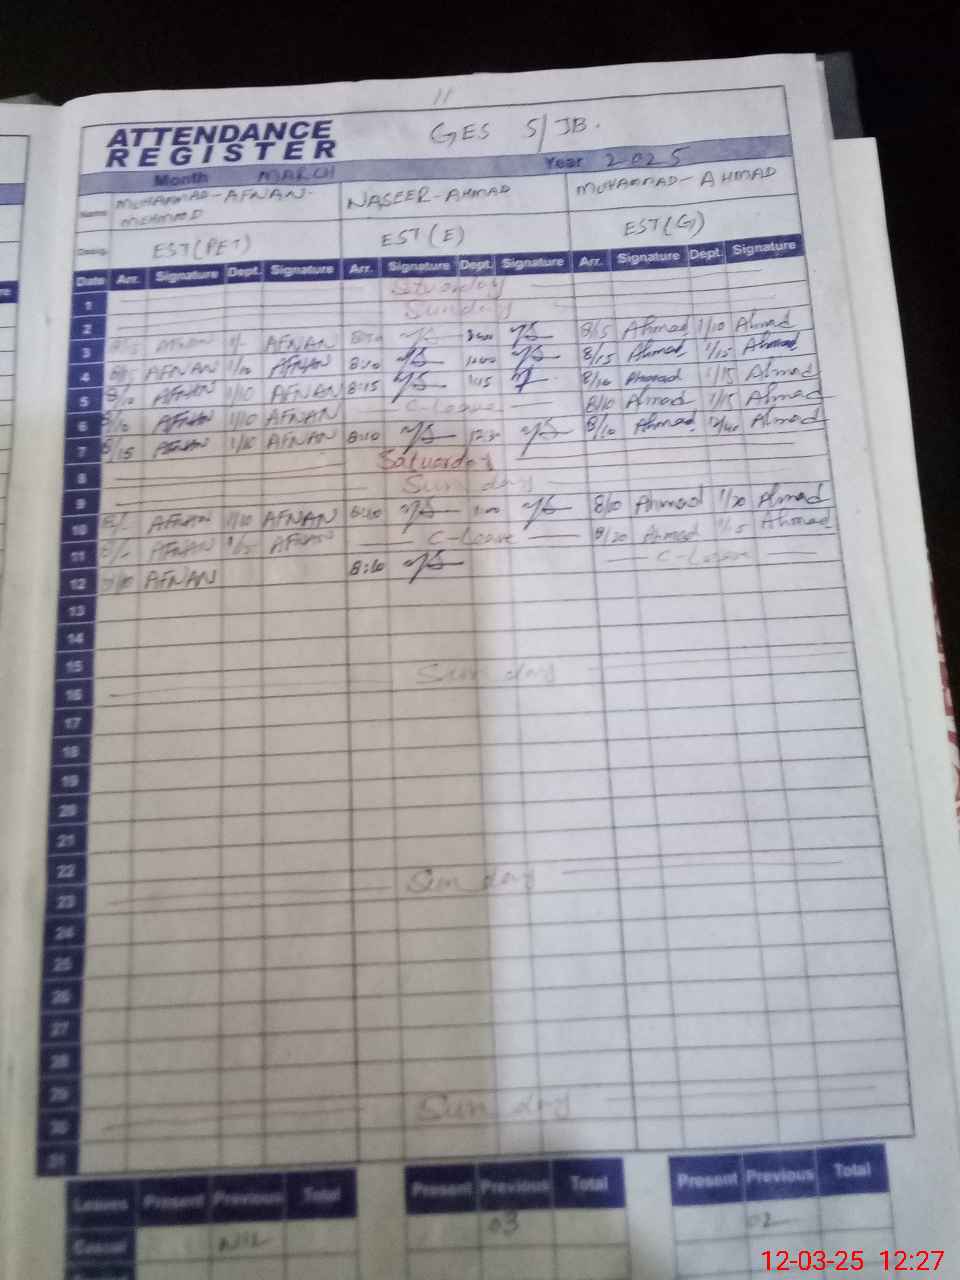 11
ATTENDANCE GES 5/JB.
REGISTER
Month MARCH Year 2025
Name MUHAMMAD-AFNAN- NASEER-AHMAD MUHAMMAD-AHMAD
MEHMOOD
Desig. EST(PET) EST(E) EST(G)
Date Arr. Signature Dept. Signature Arr. Signature Dept. Signature Arr. Signature Dept. Signature
1 Satuarday
2 Sunday
3 AFNAN AFNAN 8/15 Ahmad 1/10 Ahmad
4 AFNAN 1/10 AFNAN 8:10 8/15 Ahmad 1/15 Ahmad
5 8/10 AFNAN 1/10 AFNAN 8:15 1:15 8/10 Ahmad 1/15 Ahmad
6 8/10 AFNAN 1/10 AFNAN C-Leave 8/10 Ahmad 1/15 Ahmad
7 8/15 AFNAN 1/10 AFNAN 8:10 8/10 Ahmad 12/40 Ahmad
8 Satuarday
9 Sunday
10 AFNAN 1/10 AFNAN 8:10 8/10 Ahmad 1/20 Ahmad
11 AFNAN AFNAN C-Leave 8/20 Ahmad 1/15 Ahmad
12 8/10 AFNAN 8:10 C-Leave
13
14
15
16 Sunday
17
18
19
20
21
22
23 Sunday
24
25
26
27
28
29
30 Sunday
31
Leaves Present Previous Total Present Previous Total Present Previous Total
Casual NIL 03 02
12-03-25 12:27